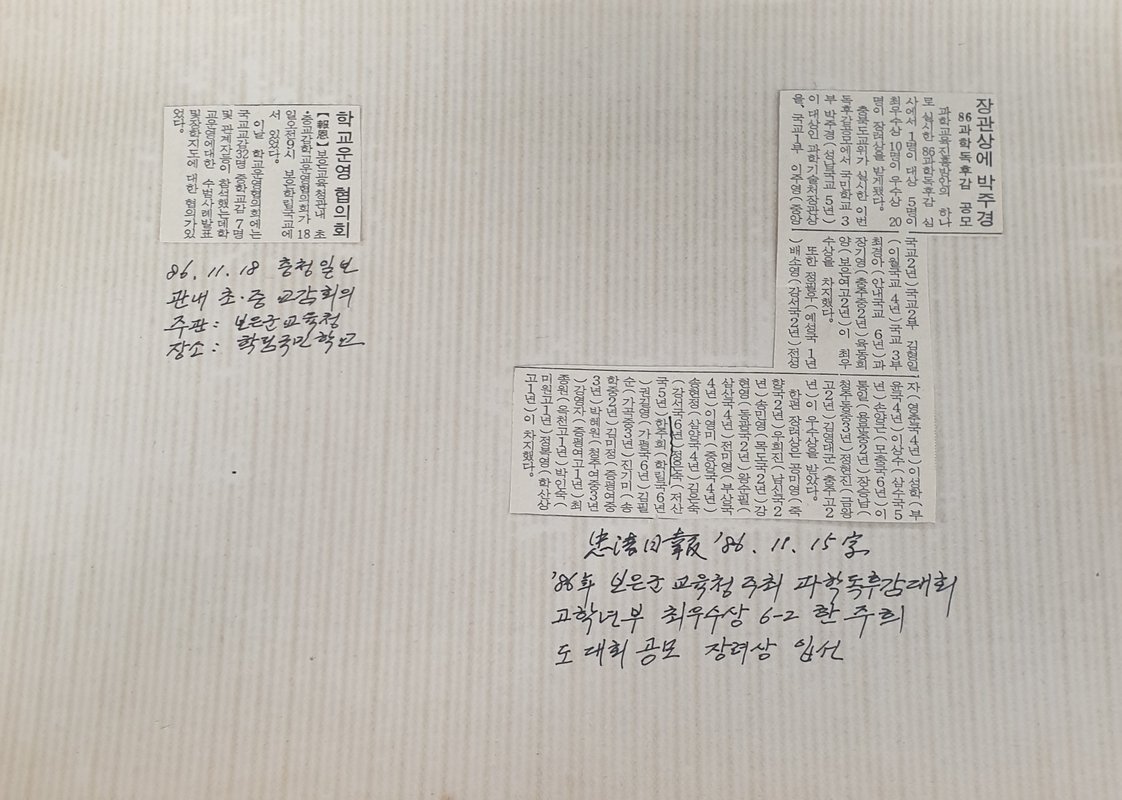 학교운영 협의회
【報恩】보은교육청관내 초
·중교감학교운영협의회가 18
일오전9시 보은학림국교에
서 있었다。
이날 학교운영협의회에는
국교교감32명 중학교감 7명
및 관계자등이 참석했는데학
교운영에대한 수범사례발표
및장학지도에 대한 협의가있
었다。
86. 11. 18 충청일보
관내 초·중 교감회의
주관: 보은군교육청
장소: 학림국민학교
장관상에 박주경
86과학독후감 공모
과학교육진흥방안의 하나
로 실시한 86과학독후감 심
사에서 1명이 대상 5명이
최우수상 10명이 우수상 20
명이 장려상을 받게됐다。
충북도교위가 실시한 이번
독후감공모에서 국민학교 3
부 박주경(성남국교 5년)
이 대상인 과학기술처장관상
을、국교1부 이주영(중앙
국교2년)국교2부 김형일
(이월국교 4년)국교 3부
최경아(안내국교 6년)과
장기영(충주중2년)육동희
양(보은여고2년)이 최우
수상을 차지했다。
또한 정필우(예성국 1년
)배소영(강서국2년)전성
자(영춘국4년)이선학(부
윤국4년)이상수(삼수국5
년)손양근(모충국6년)이
통일(용문중2년)장승남(
청주동중3년)정현진(금왕
고2년)김영대군(충주고2
년)이 우수상을 받았다。
한편 장려상은 공미영(죽
향국2년)우희진(남신국2
년)송미영(목도국2년)강
현영(동관국2년)왕수필(
삼산국4년)전미영(부상국
4년)이영미(중앙국4년)
송현정(삼양국4년)김은숙
(강서국6년)정은숙(저산
국5년)한주희(학림국6년
)권길영(가평국6년)김필
순(가곡중3년)진기미(송
학중2년)김미정(증평여중
3년)박혜원(청주여중3년
)강영자(증평여고1년)최
종원(옥천고1년)박인숙(
미원고1년)정복영(학산상
고1년)이 차지했다。
忠淸日報 '86. 11. 15字
'86年 보은군 교육청 주최 과학독후감대회
고학년부 최우수상 6-2 한주희
도 대회 공모 장려상 입선